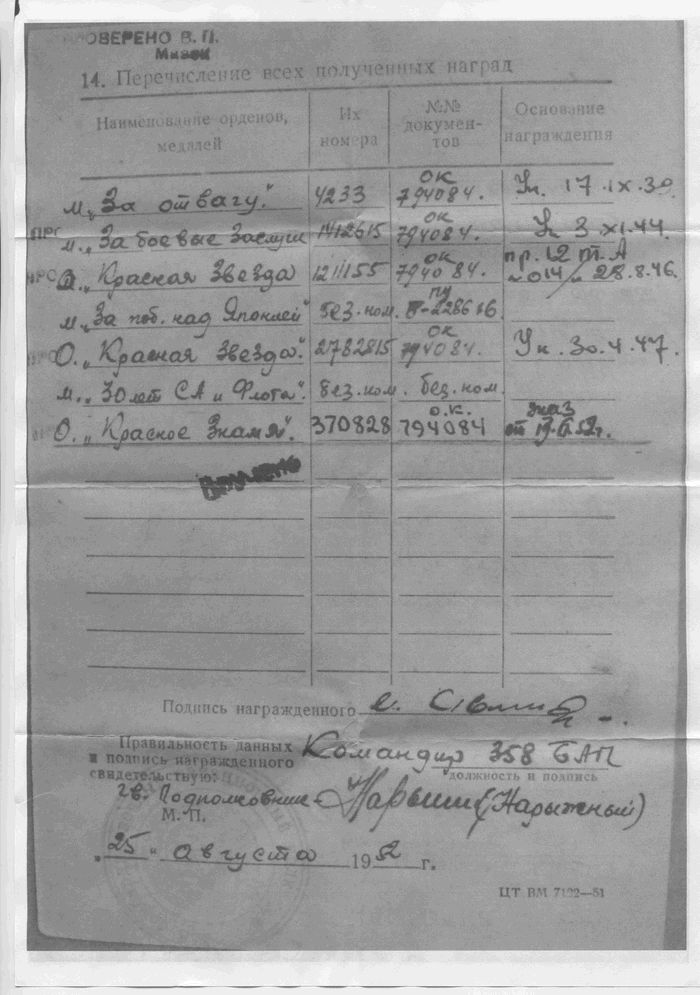 ОВЕРЕНО В. П.
14. Перечисление всех полученных наград
Наименование орденов, медалей
Их номера
№№ документов
Основание награждения
м. „За отвагу." 4233 ОК 794084. Ук. 17.IX.39.
м. „За боевые Заслуги 1412615 ОК 794084. Ук 3.XI.44.
О. „Красная Звезда 1211155 ОК 794084. пр. 12 № 014/ 28.8.46.
м. „За поб. над Японией" без.ном.
О. „Красная Звезда." 2782815 ОК 794084. Ук. 30.4.47.
м. „30 лет СА и Флота". без.ном. без.ном.
О. „Красное Знамя". 370828 О.К. 794084
Подпись награжденного
Правильность данных
и подпись награжденного
свидетельствую:
Командир 358 БАП
должность и подпись
гв. Подполковник (Нарыжный)
М. П.
„25" августа 1952 г.
ЦТ ВМ 7122—51